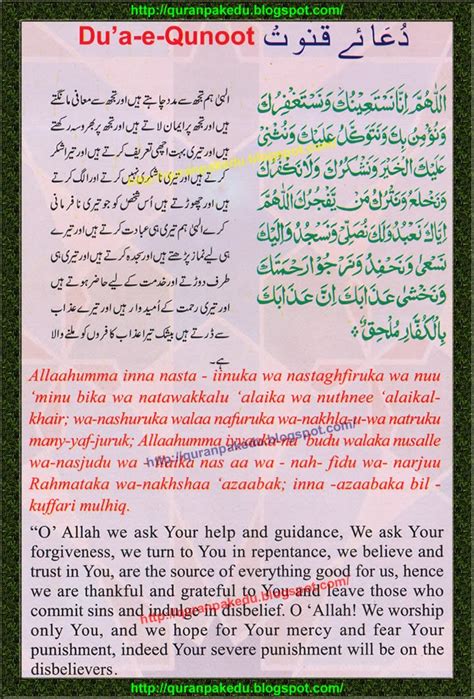 http://quranpakedu.blogspot.com/
Du’a-e-Qunoot دُعَائے قنوتْ
الہیٰ ہم تجھ سے مدد چاہتے ہیں اور تجھ سے معافی مانگتے
ہیں اور تجھ پر ایمان لاتے ہیں اور تجھ پر بھروسہ رکھتے
ہیں اور تیری بہت اچھی تعریف کرتے ہیں اور تیرا شکر
کرتے ہیں اور تیری ناشکری نہیں کرتے اور الگ کرتے
ہیں اور چھوڑتے ہیں اس شخص کو جو تیری نافرمانی
کرے الہیٰ ہم تیری ہی عبادت کرتے ہیں اور تیرے
ہی لیے نماز پڑھتے ہیں اور سجدہ کرتے ہیں اور تیری ہی
طرف دوڑتے اور خدمت کے لیے حاضر ہوتے ہیں
اور تیری رحمت کے اُمیدوار ہیں اور تیرے عذاب
سے ڈرتے ہیں بیشک تیرا عذاب کافروں کو ملنے والا
ہے۔
اَللّٰهُمَّ اِنَّا نَسْتَعِيْنُكَ وَنَسْتَغْفِرُكَ
وَنُؤْمِنُ بِكَ وَنَتَوَكَّلُ عَلَيْكَ وَنُثْنِيْ
عَلَيْكَ الْخَيْرَ وَنَشْكُرُكَ وَلَا نَكْفُرُكَ
وَنَخْلَعُ وَنَتْرُكُ مَنْ يَّفْجُرُكَ اَللّٰهُمَّ
اِيَّاكَ نَعْبُدُ وَلَكَ نُصَلِّيْ وَنَسْجُدُ وَاِلَيْكَ
نَسْعٰى وَنَحْفِدُ وَنَرْجُوْا رَحْمَتَكَ
وَنَخْشٰى عَذَابَكَ اِنَّ عَذَابَكَ
بِالْكُفَّارِ مُلْحِقٌ
http://quranpakedu.blogspot.com/
Allaahumma inna nasta - iinuka wa nastaghfiruka wa nuu
‘minu bika wa natawakkalu ‘alaika wa nuthnee ‘alaikal-
khair; wa-nashuruka walaa nafuruka wa-nakhla-u-wa natruku
many-yaf-juruk; Allaahumma iyyaaka-na ’budu walaka nusalle
http://quranpakedu.blogspot.com/
wa-nasjudu wa - ilaika nas aa wa - nah- fidu wa- narjuu
Rahmataka wa-nakhshaa ‘azaabak; inna -azaabaka bil -
kuffari mulhiq.
“O’ Allah we ask Your help and guidance, We ask Your
forgiveness, we turn to You in repentance, we believe and
trust in You, are the source of everything good for us, hence
we are thankful and grateful to You and leave those who
http://quranpakedu.blogspot.com/
commit sins and indulge in disbelief. O ‘Allah! We worship
only You, and we hope for Your mercy and fear Your
punishment, indeed Your severe punishment will be on the
disbelievers.
http://quranpakedu.blogspot.com/